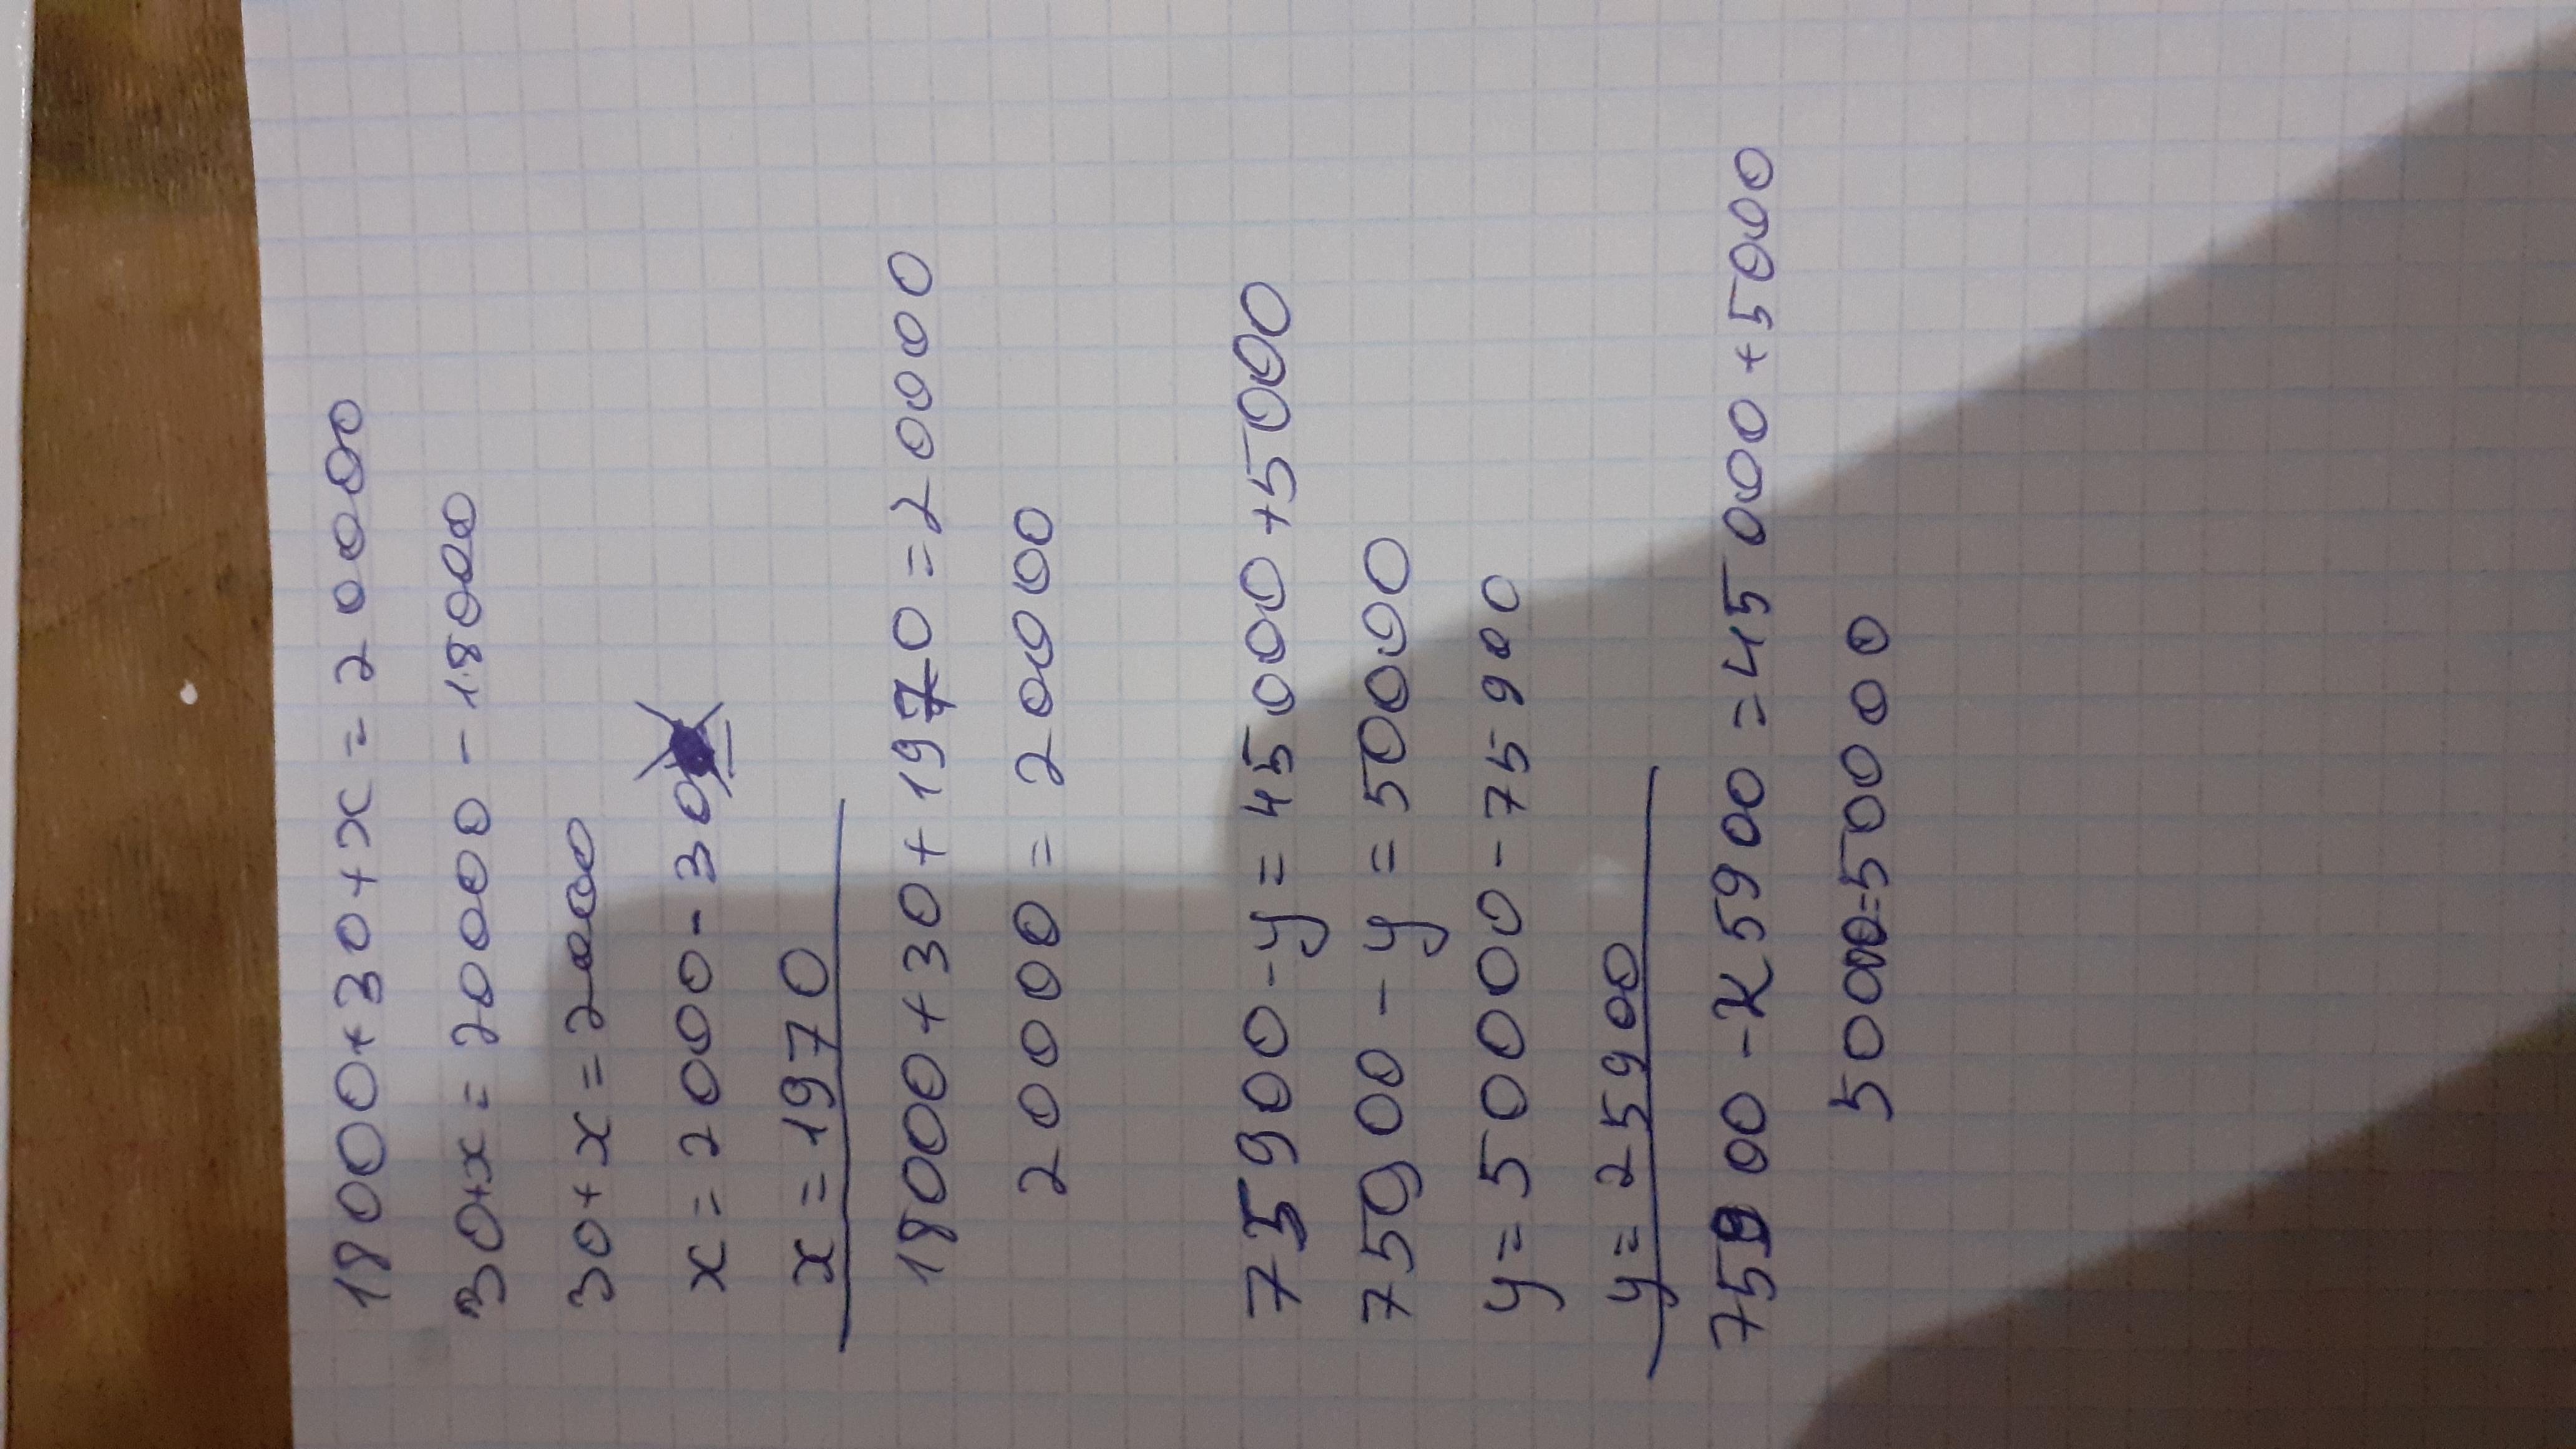 18000+30+x=20000
30+x=20000-18000
30+x=2000
x=2000-30
x=1970
18000+30+1970=20000
20000=20000
75900-y=45000+5000
75900-y=50000
y=50000-75900
y=25900
75900-25900=45000+5000
50000=50000